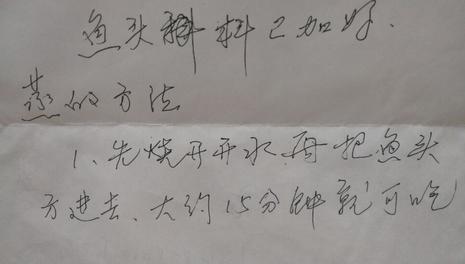 鱼头料已加好.
蒸的方法
1、先烧开开水再把鱼头
方进去、大约15分钟就可吃